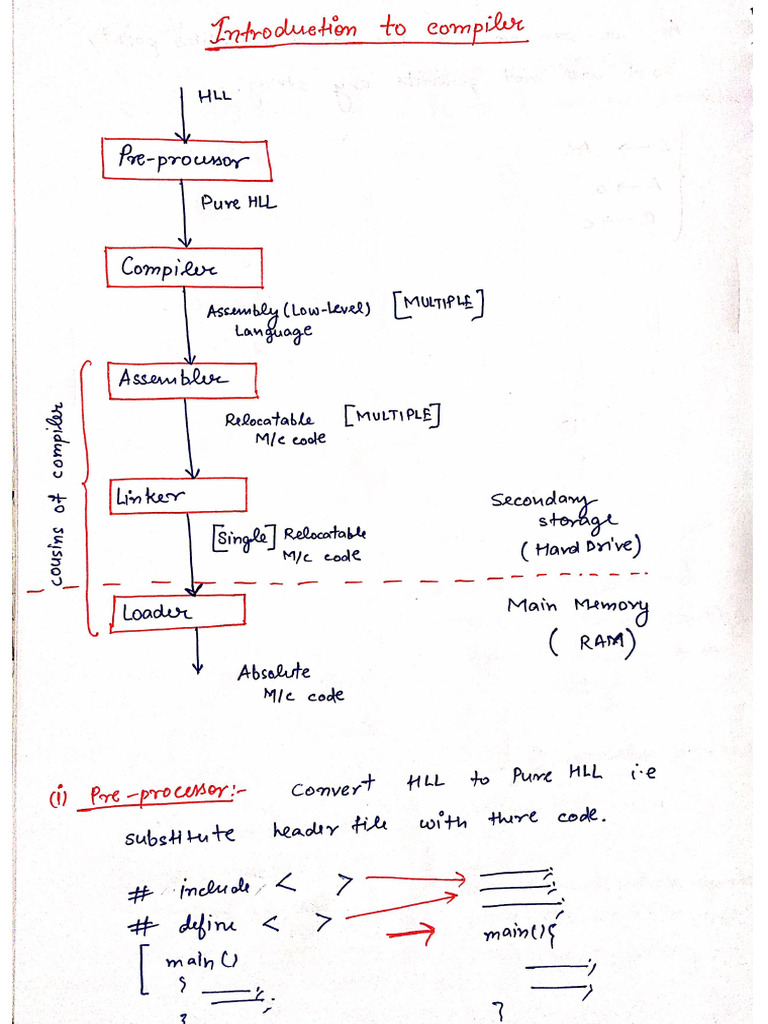 Introduction to compiler
HLL
Pre-processor
Pure HLL
Compiler
Assembly (Low-Level) [MULTIPLE]
Language
Assembler
Relocatable [MULTIPLE]
M/c code
cousins of compiler
Linker
Secondary
storage
(Hard Drive)
[Single] Relocatable
M/c code
Loader
Main Memory
(RAM)
Absolute
M/c code
(i) Pre-processor:- Convert HLL to Pure HLL i.e
substitute header file with there code.
# include < >
# define < > main(){
[ main()
{ ;
} }